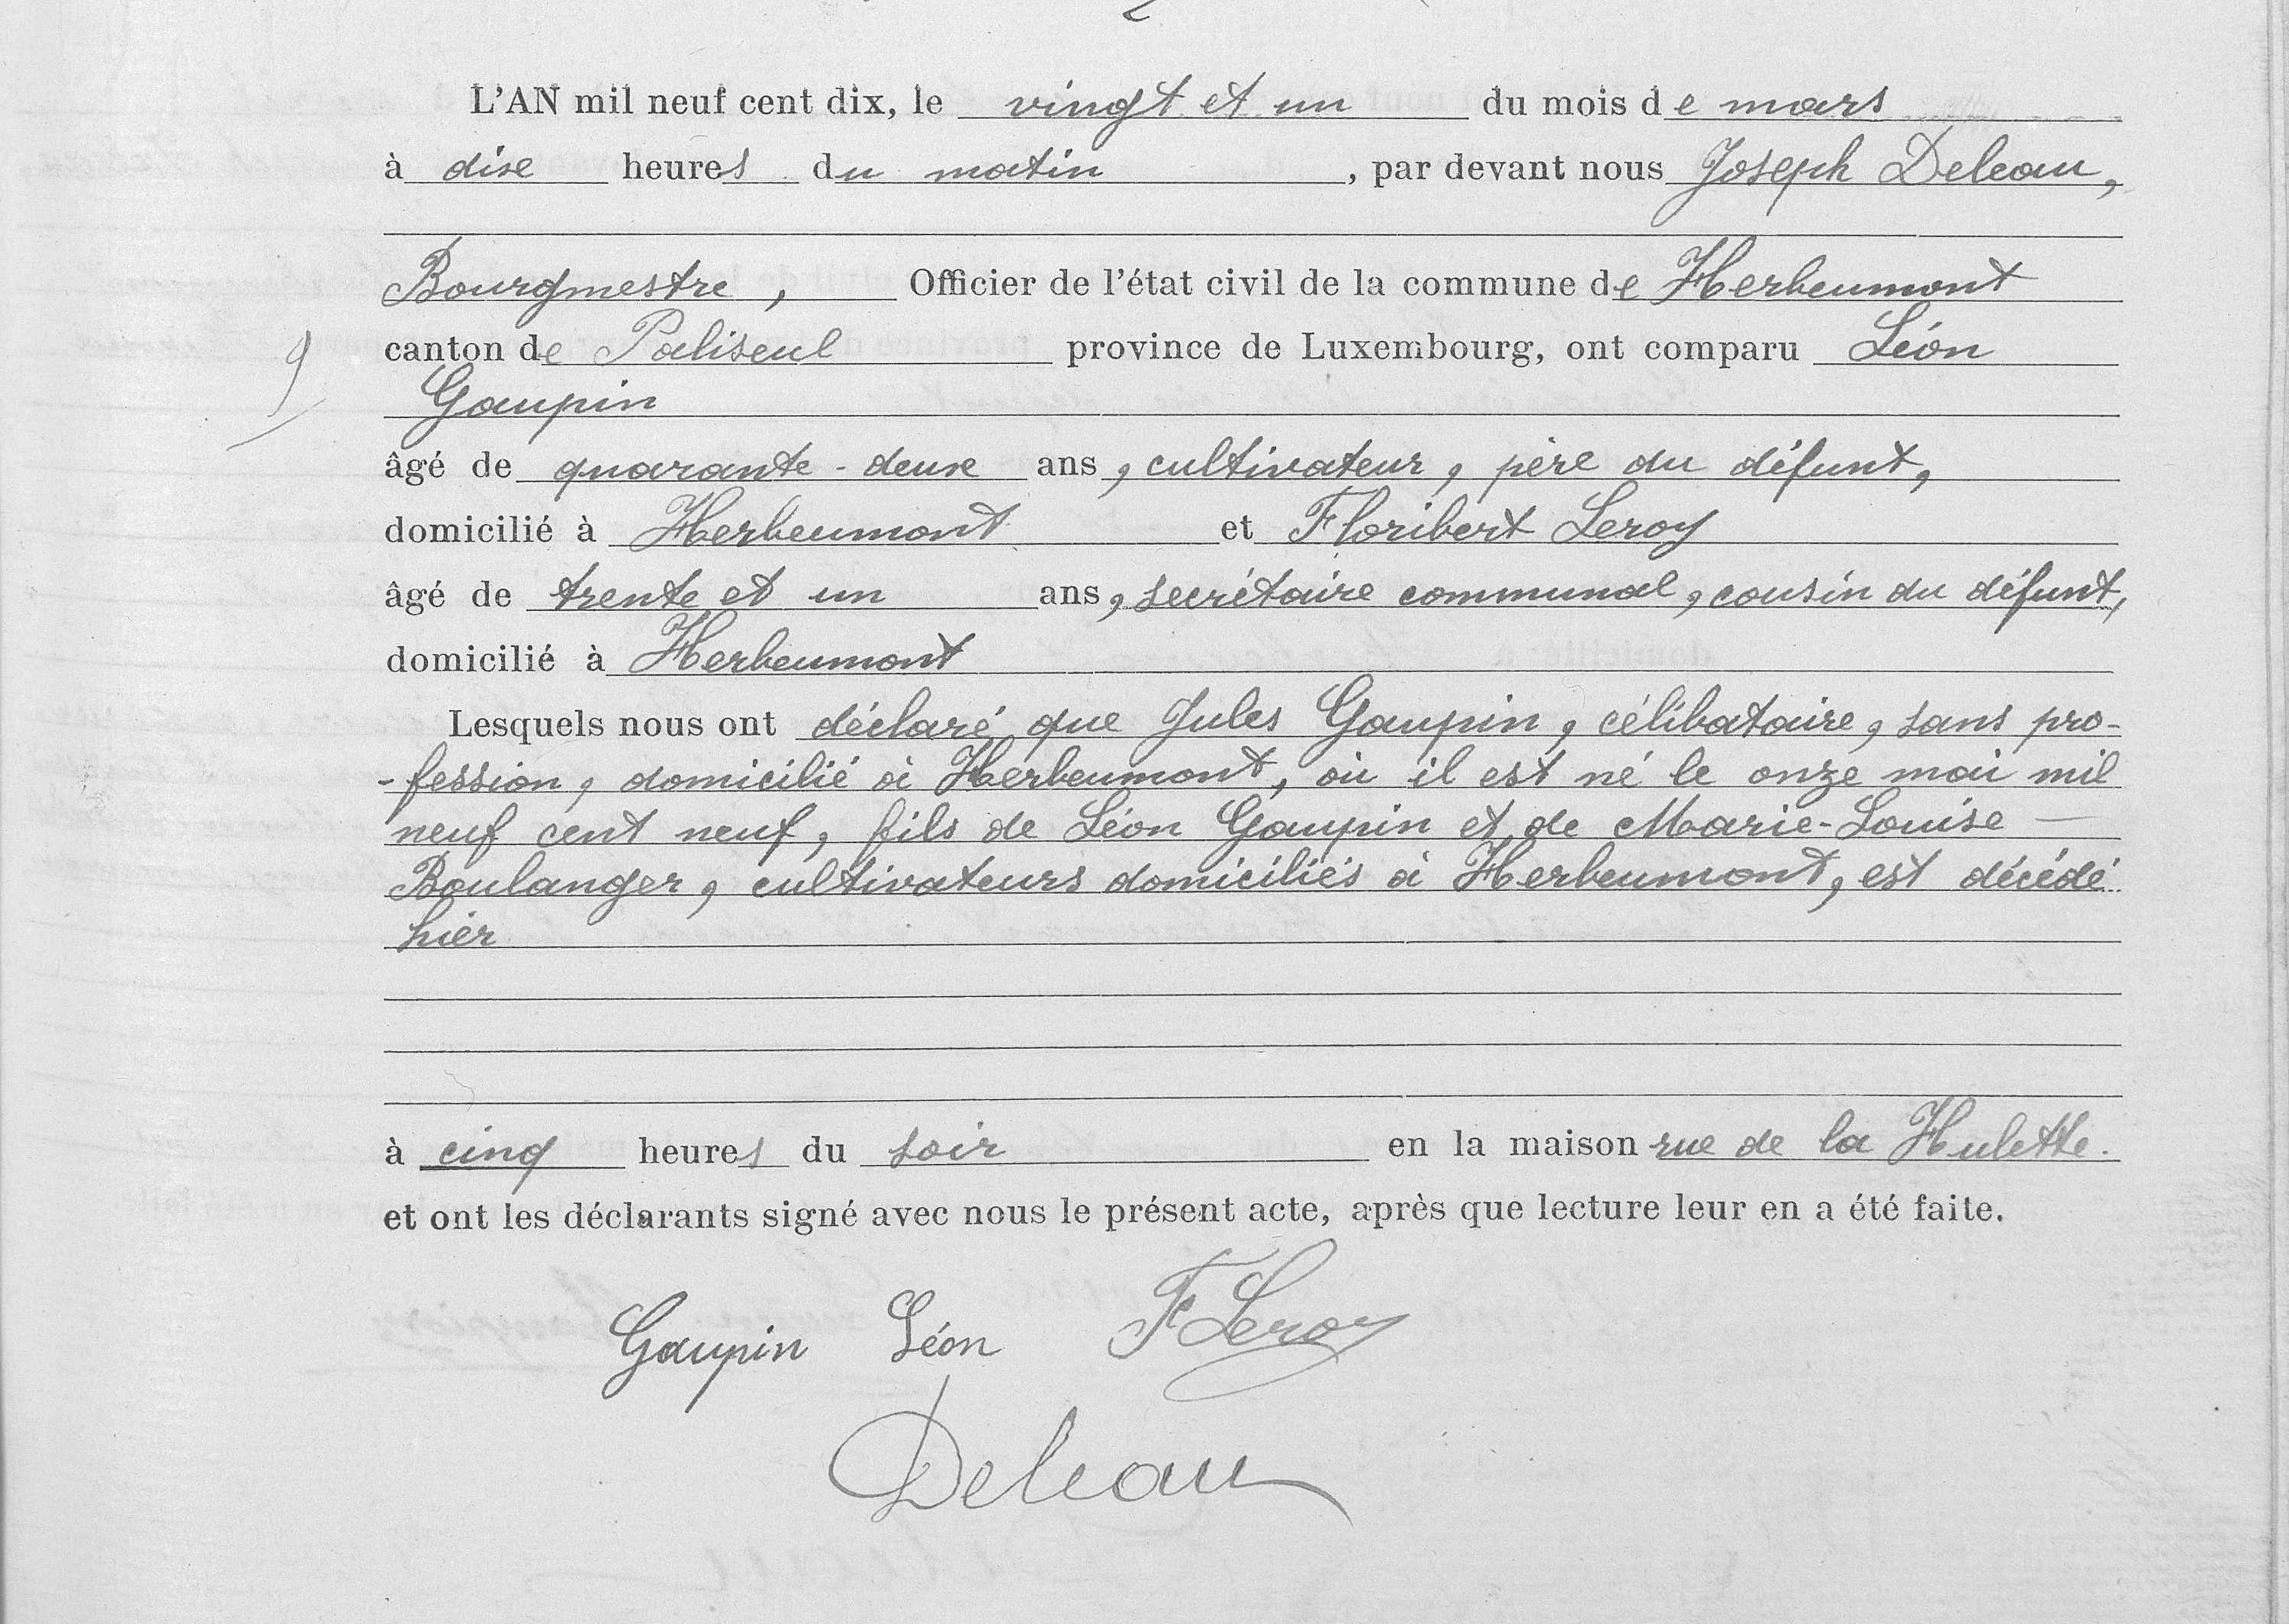 L'AN mil neuf cent dix, le vingt et un du mois de mars
à dix heures du matin, par devant nous Joseph Deleau,
Bourgmestre, Officier de l'état civil de la commune de Herbeumont
canton de Paliseul province de Luxembourg, ont comparu Léon
Gaupin
âgé de quarante-deux ans, cultivateur, père du défunt,
domicilié à Herbeumont et Floribert Leroy
âgé de trente et un ans, secrétaire communal, cousin du défunt,
domicilié à Herbeumont
Lesquels nous ont déclaré que Jules Gaupin, célibataire, sans pro-
-fession, domicilié à Herbeumont, où il est né le onze mai mil
neuf cent neuf, fils de Léon Gaupin et de Marie-Louise —
Boulanger, cultivateurs domiciliés à Herbeumont, est décédé
hier
à cinq heures du soir en la maison rue de la Hulette.
et ont les déclarants signé avec nous le présent acte, après que lecture leur en a été faite.
Gaupin Léon F Leroy
Deleau